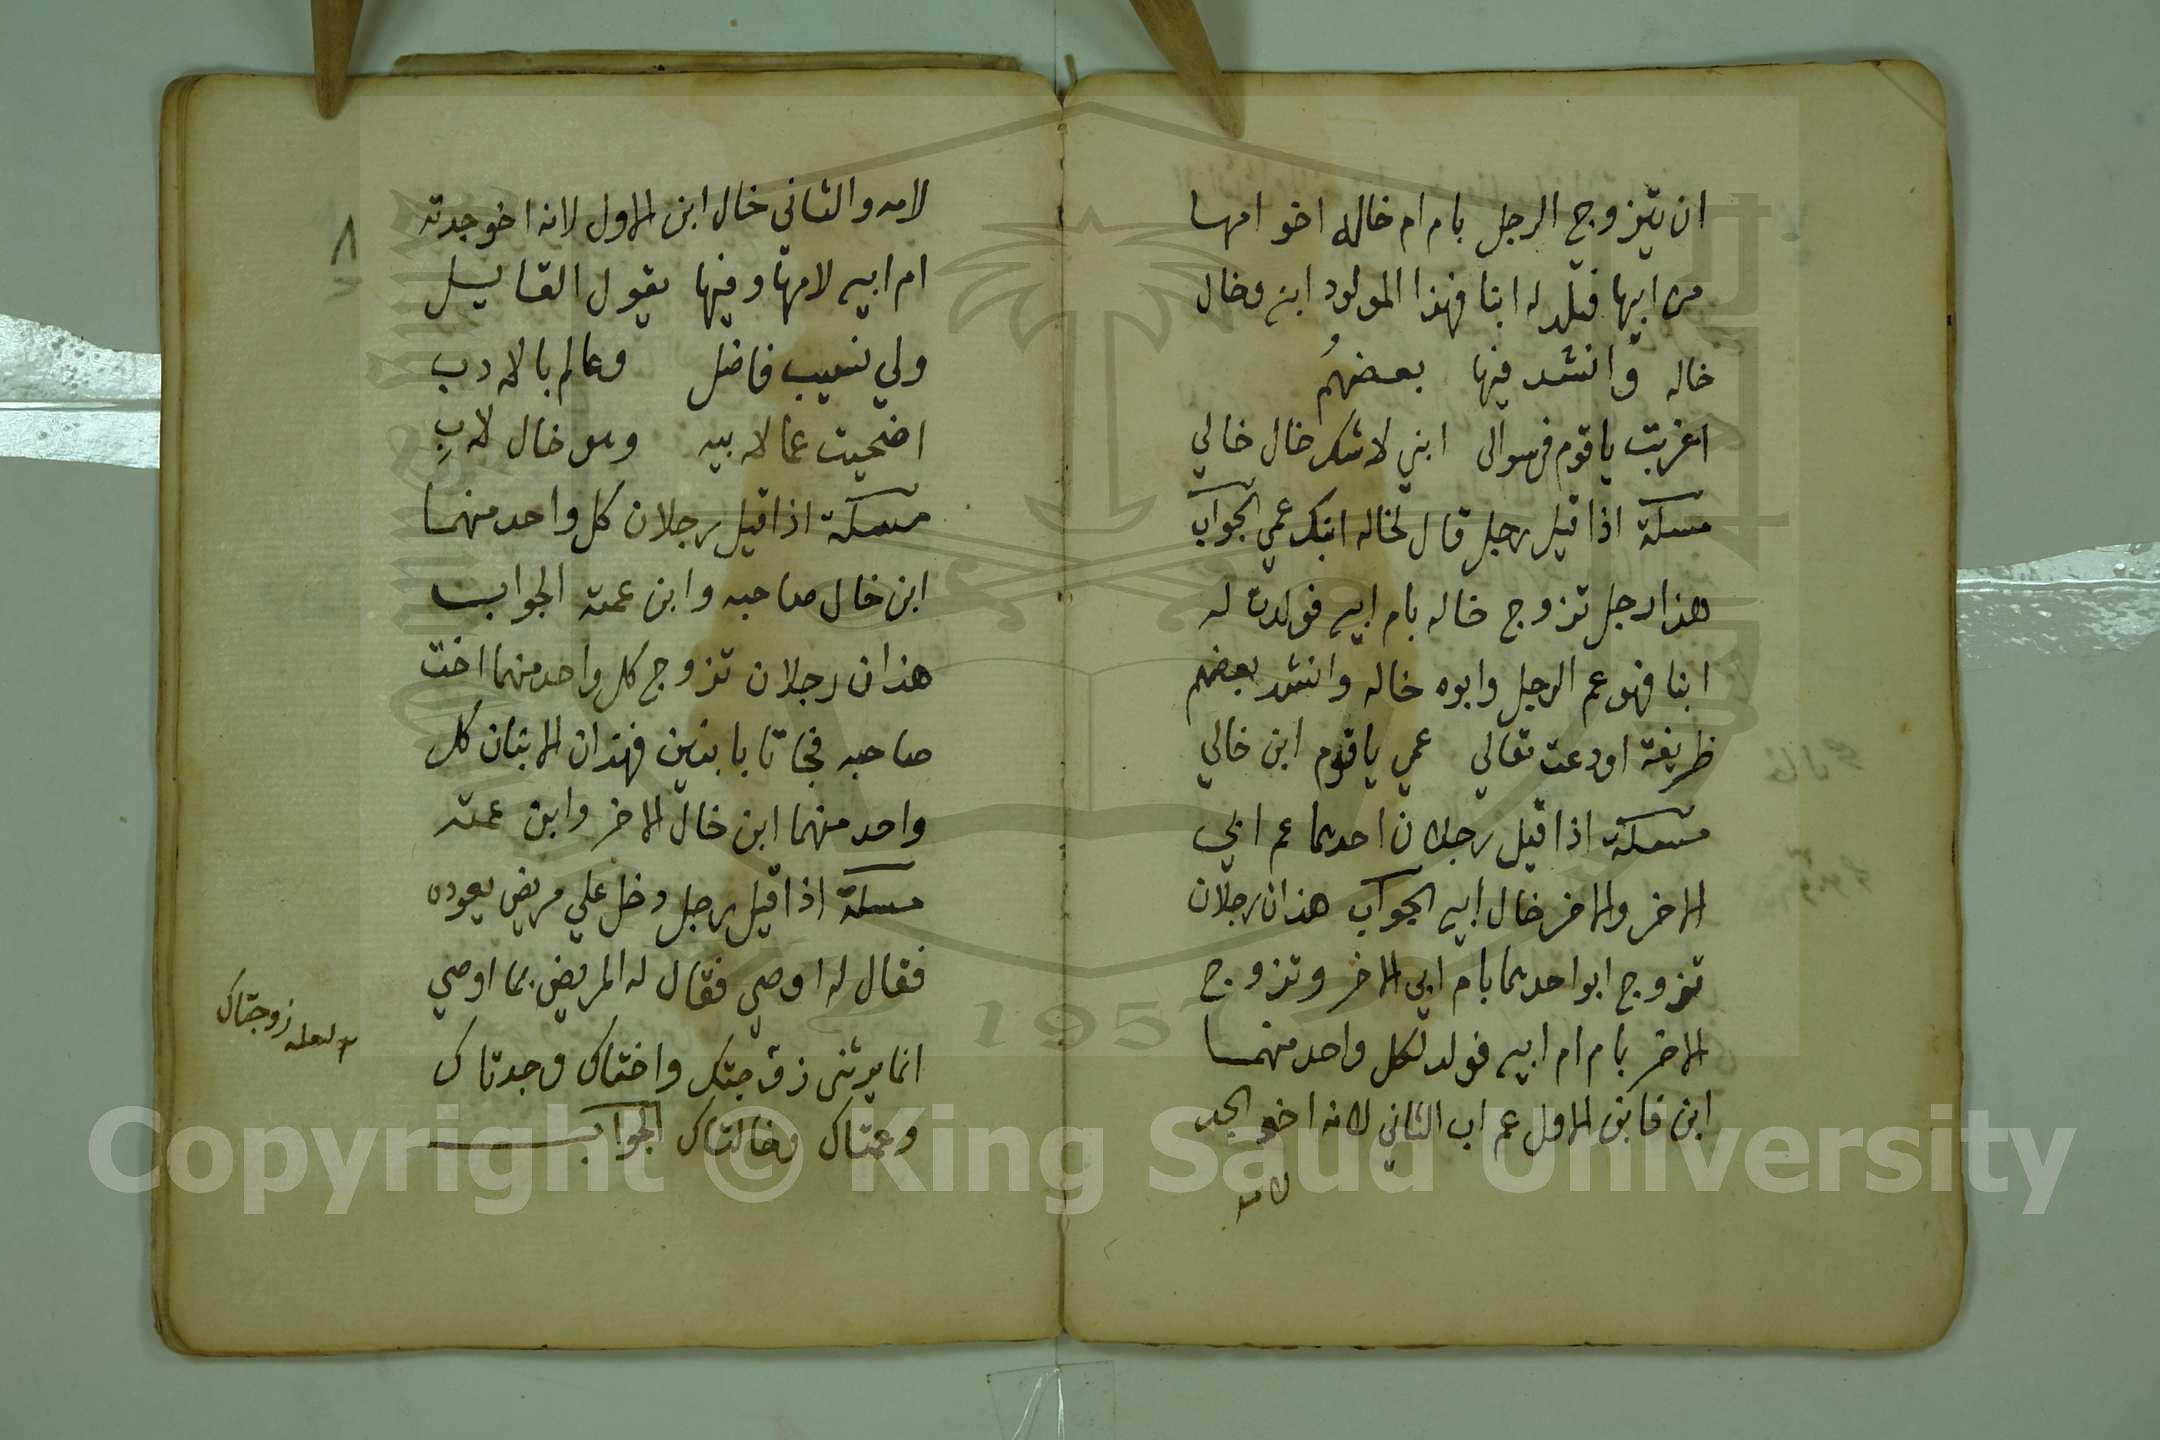 ان يتزوج الرجل بام ام خاله اخو امها
من ابيها فتلد له ابنا فهذا المولود ابنه وخال
خاله وانشد فيها بعضهم
اعزبت يا قوم في سوالى ابني لا شك خال خالي
مسئلة اذا قيل رجل قال لخاله ابنك عمي الجواب
هذا رجل تزوج خاله بام ابيه فولدت له
ابنا فهو عم الرجل وابوه خاله وانشد بعضهم
ظريفة اودعت مقالي عمي يا قوم ابن خالي
مسئلة اذا قيل رجلان احدهما عم ابي
الاخر والاخر خال ابيه الجواب هذان رجلان
تزوج ابو احدهما بام ابي الاخر وتزوج
الاخر بام ام ابيه فولد لكل واحد منهما
ابن فابن الاول عم اب الثاني لانه اخو الجد
لامه
لامه والثاني خال ابن الاول لانه اخو جدته
ام ابيه لامها وفيها يقول القايل
ولي نسيب فاضل وعالم بالادب
اضحيت عما لابيه وهو خال لاب
مسئلة اذا قيل رجلان كل واحد منهما
ابن خال صاحبه وابن عمته الجواب
هذان رجلان تزوج كل واحد منهما اخت
صاحبه فجاتا بابنين فهذان الابنان كل
واحد منهما ابن خال الاخر وابن عمته
مسئلة اذا قيل رجل دخل علي مريض يعوده
فقال له اوصي فقال له المريض بما اوصي
انما يرثنى زوجتك واختاك وجدتاك
وعمتاك وخالتاك الجواب
لعله زوجتاك
٨
Copyright © King Saud University
1957